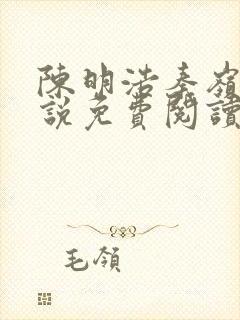 陳明浩秦嶺
說免費閱讀
毛領